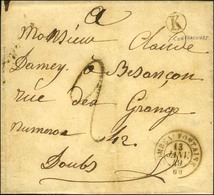 a
Monsieur Claude
K
Damey à Besançon
rue des Granges
2
Numero 42
Doubs
13
JANV.